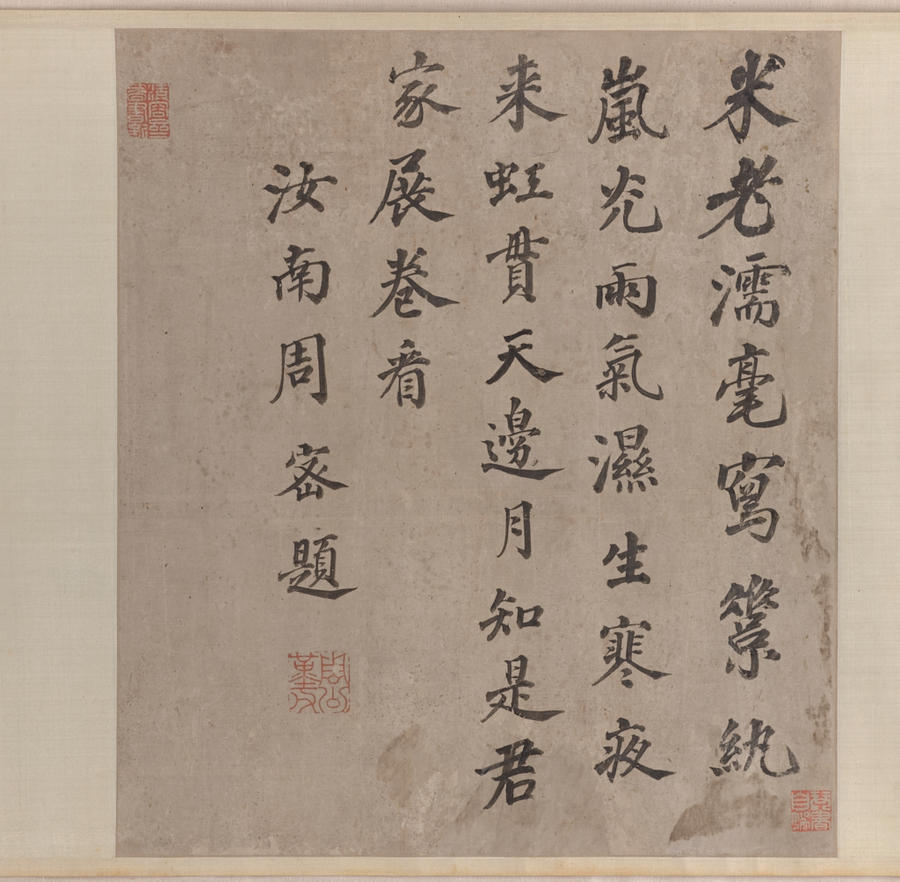 米老濡毫寫紈
嵐光雨氣濕生寒夜
来虹貫天邊月知是君
家展卷看
汝南周密題